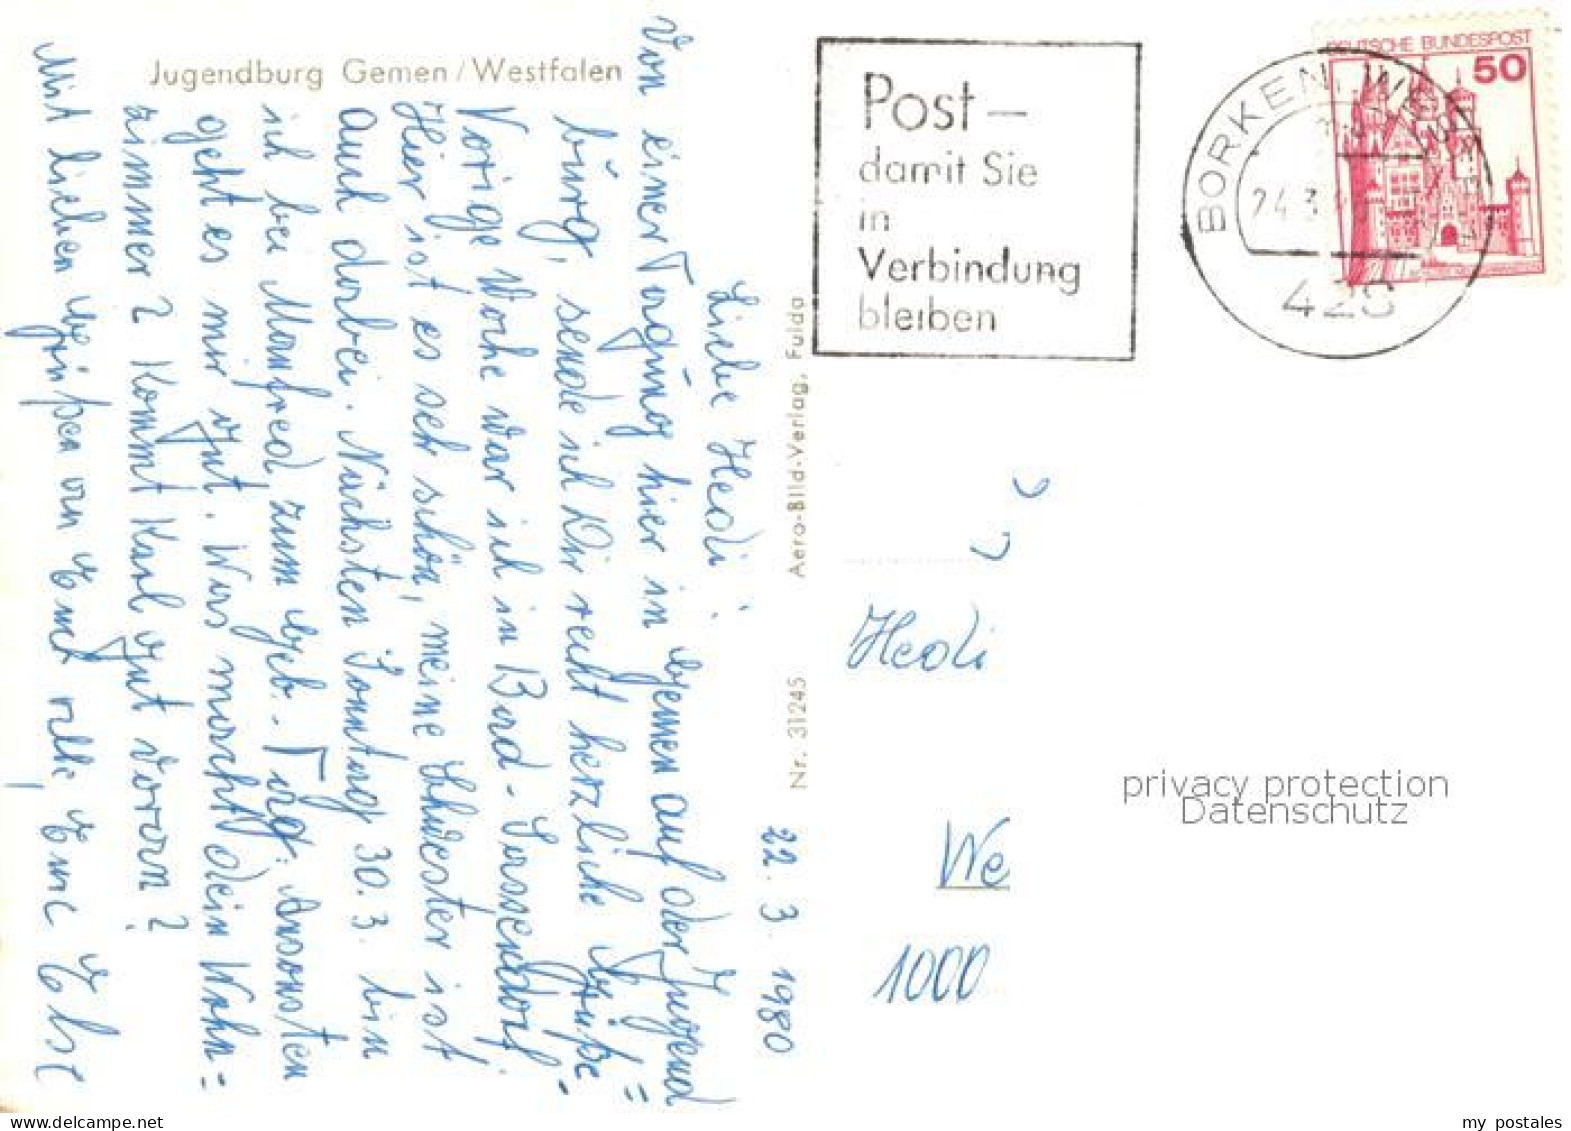 Jugendburg Gemen / Westfalen
22. 3. 1980
Liebe Hedi!
Von einer Tagung hier in Gemen auf der Jugend=
burg, sende ich Dir recht herzliche Grüße
Vorige Woche war ich in Bad-Sassendorf
Hier ist es sehr schön, meine Schwester ist
auch dabei. Nächsten Sonntag 30. 3. bin
ich bei Manfred, zum Geb. Tag. Ansonsten
geht es mir gut. Was macht dein Wohn=
zimmer? Kommt Karl gut voran?
Mit lieben Grüßen an Euch alle, Eure Else
Nr. 31245 Aero-Bild-Verlag, Fulda
Post –
damit Sie
in
Verbindung
bleiben
BORKEN, WESTF
24.3.
428
DEUTSCHE BUNDESPOST
50
Hedi
We
1000
privacy protection
Datenschutz
my_postales